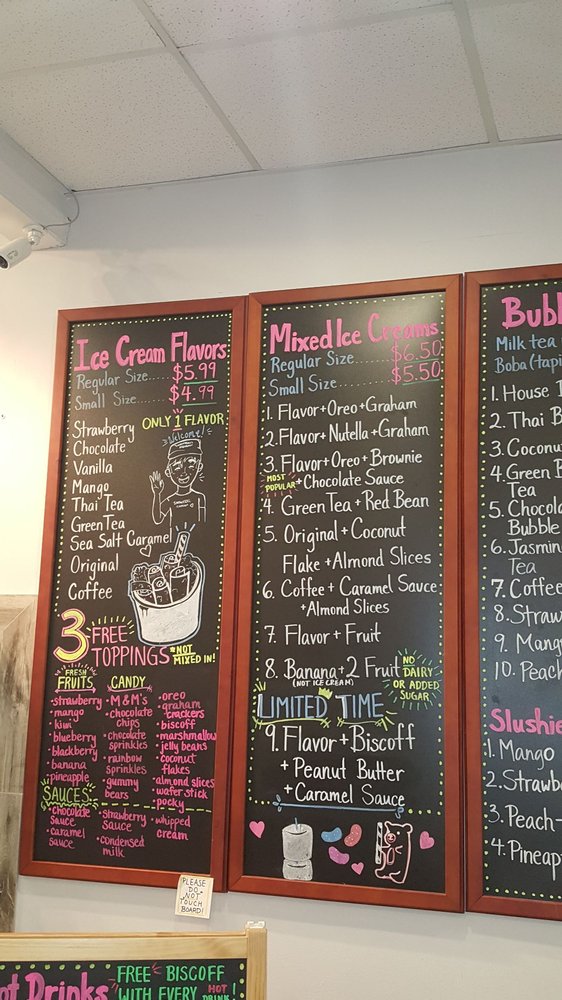 Ice Cream Flavors
Regular Size..... $5.99
Small Size....... $4.99
ONLY 1 FLAVOR
Welcome!
Strawberry
Chocolate
Vanilla
Mango
Thai Tea
Green Tea
Sea Salt Caramel
Original
Coffee
3 FREE
TOPPINGS *NOT
MIXED IN!
FRESH
FRUITS
• strawberry
• mango
• kiwi
• blueberry
• blackberry
• banana
• pineapple
CANDY
• M&M's
• chocolate
chips
• chocolate
sprinkles
• rainbow
sprinkles
• gummy
bears
• oreo
• graham
crackers
• biscoff
• marshmallow
• jelly beans
• coconut
flakes
• almond slices
• wafer stick
• pocky
SAUCES
• chocolate
sauce
• caramel
sauce
• strawberry
sauce
• condensed
milk
• whipped
cream
Mixed Ice Creams
Regular Size......... $6.50
Small Size........... $5.50
1. Flavor+Oreo+Graham
2. Flavor+Nutella+Graham
3. Flavor+Oreo+Brownie
MOST
POPULAR
+Chocolate Sauce
4. Green Tea + Red Bean
5. Original + Coconut
Flake + Almond Slices
6. Coffee + Caramel Sauce
+Almond Slices
7. Flavor + Fruit
8. Banana+2 Fruit
(NOT ICE CREAM)
NO
DAIRY
OR ADDED
SUGAR
LIMITED TIME
9. Flavor+Biscoff
+ Peanut Butter
+ Caramel Sauce
Bubb
Milk tea
Boba (tapi
1. House
2. Thai B
3. Coconu
4. Green B
Tea
5. Chocola
Bubble
6. Jasmin
Tea
7. Coffee
8. Straw
9. Mang
10. Peach
Slushie
1. Mango
2. Strawb
3. Peach-
4. Pineap
PLEASE
DO
NOT
TOUCH
BOARD!
ot Drinks
FREE BISCOFF
WITH EVERY HOT
DRINK!